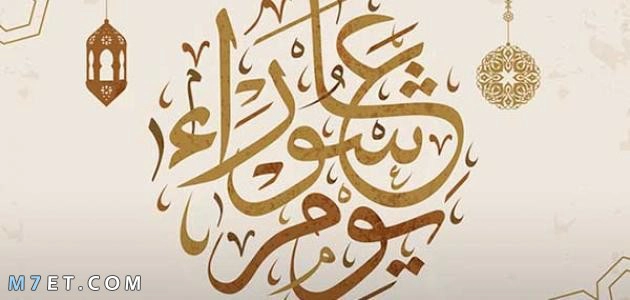 يوم
عاشوراء
M7ET.COM